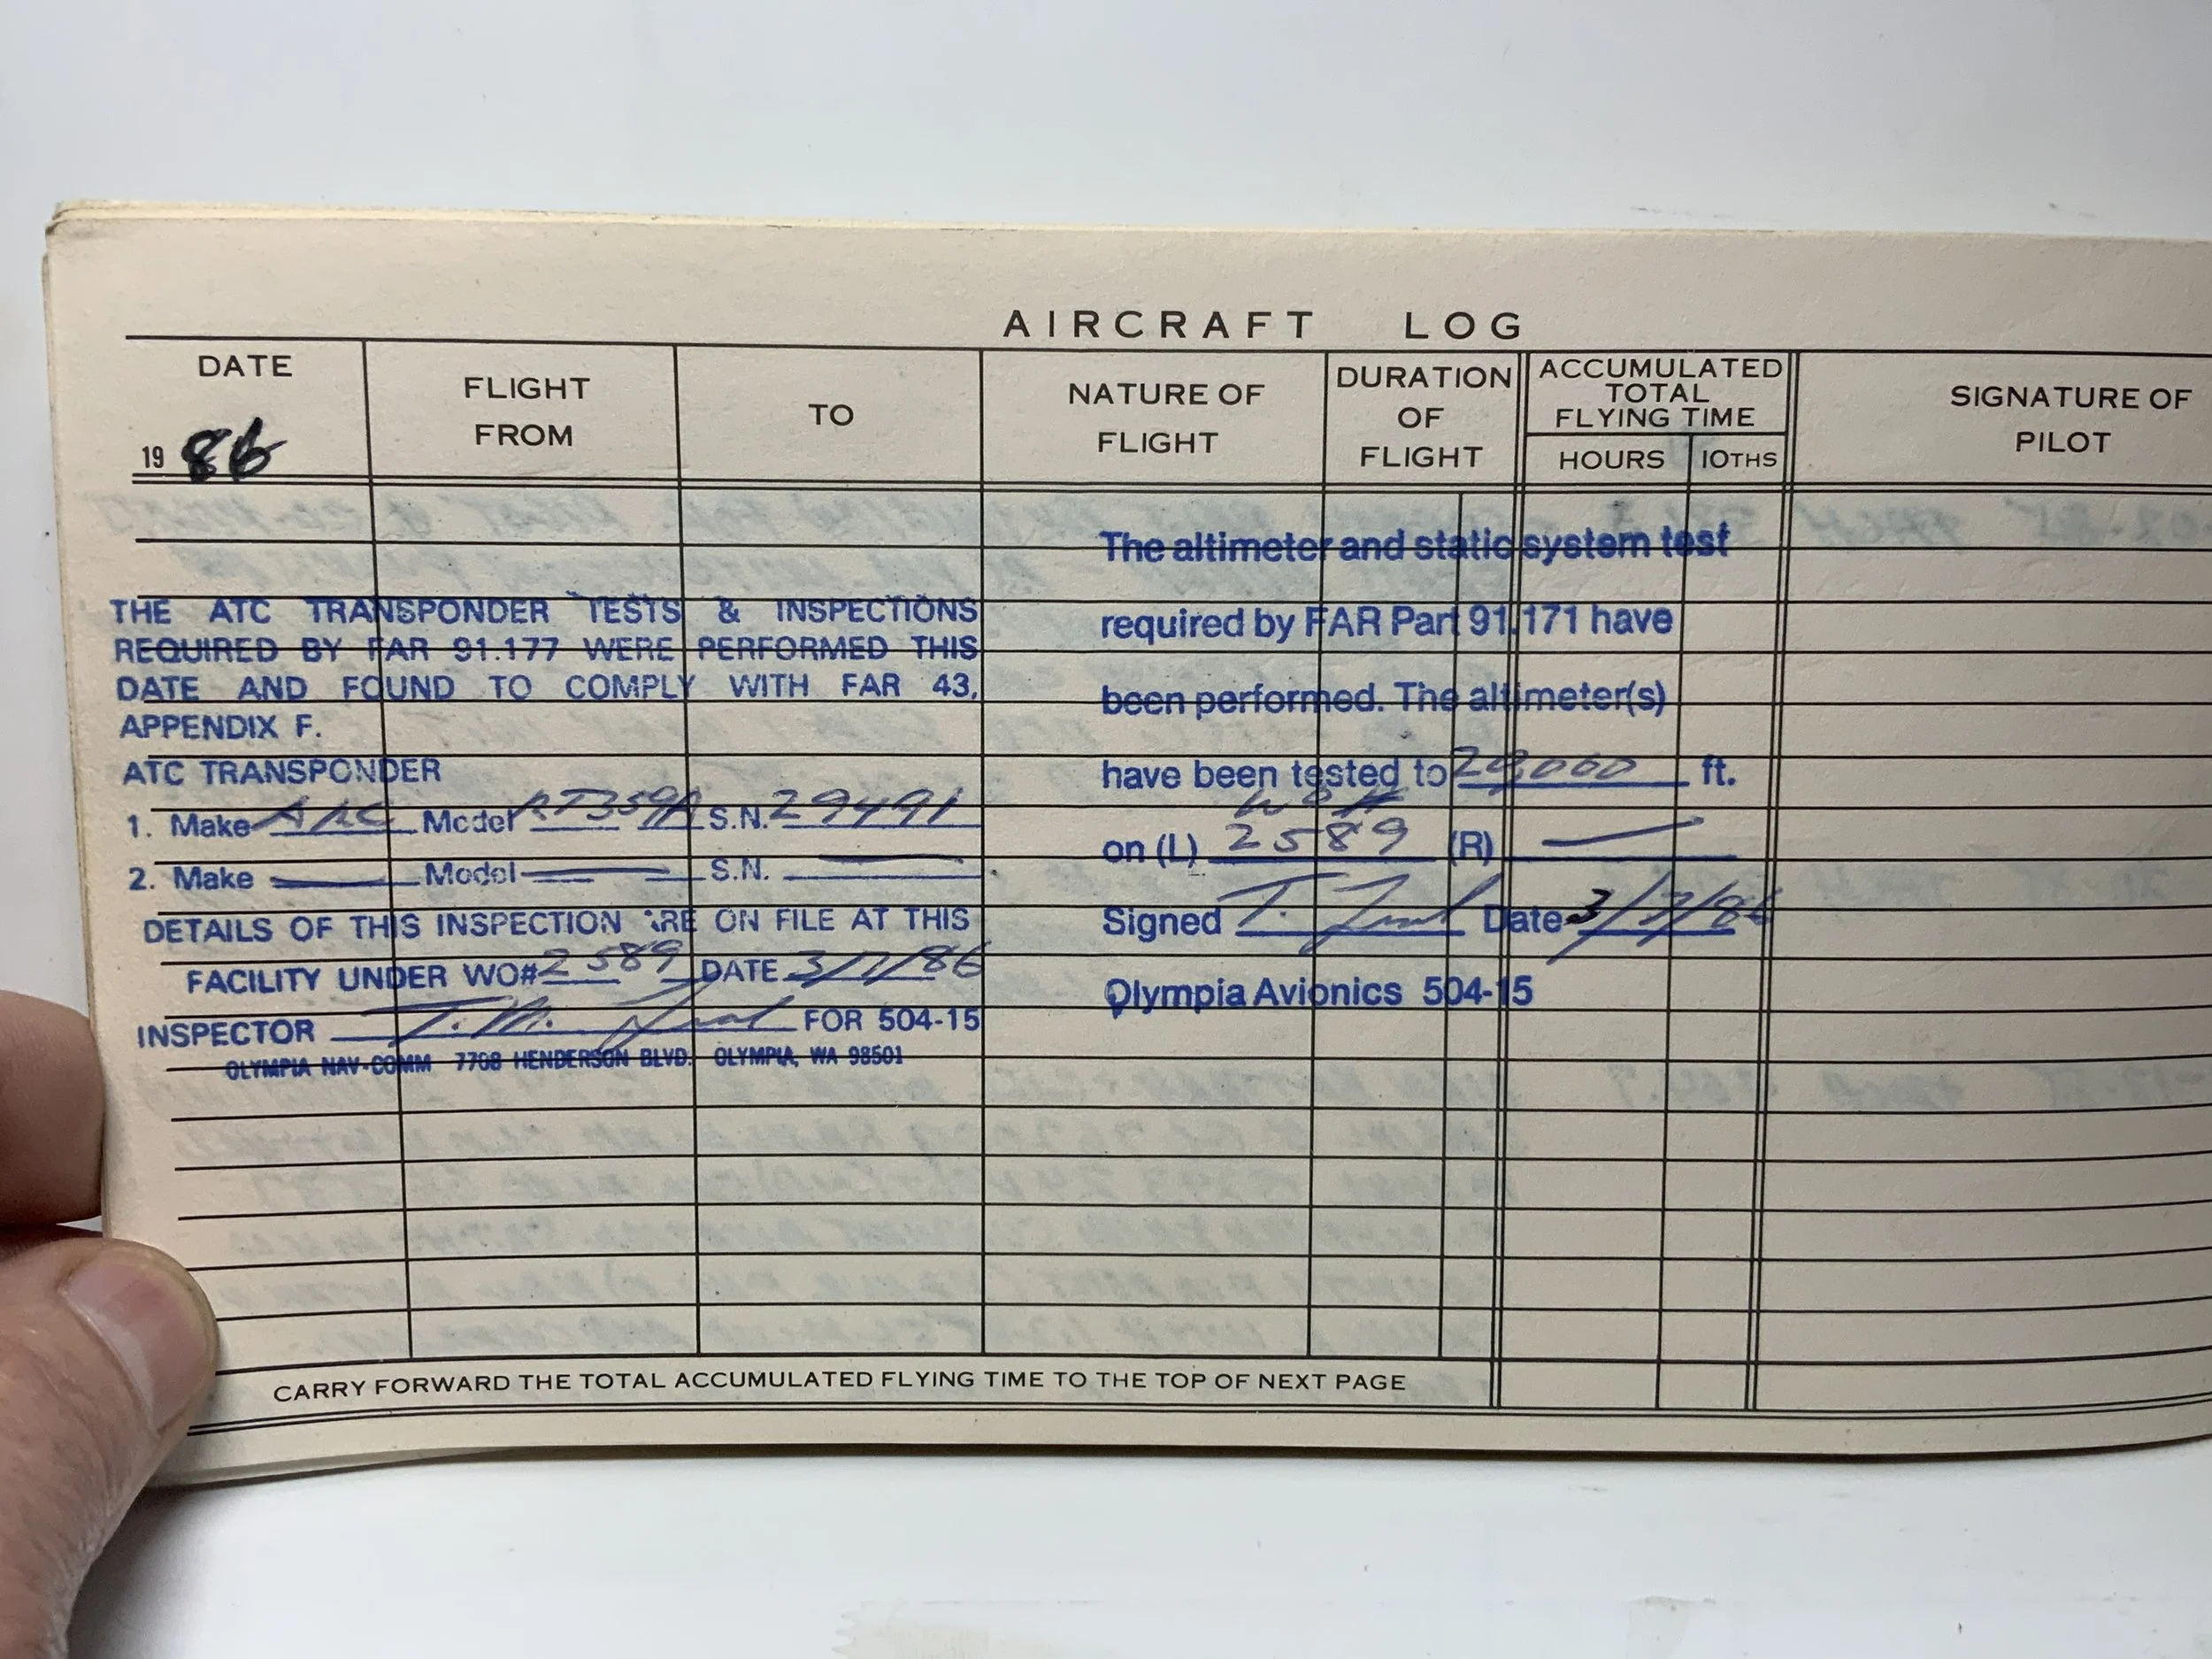 AIRCRAFT LOG
DATE
1986
FLIGHT
FROM
TO
NATURE OF
FLIGHT
DURATION
OF
FLIGHT
ACCUMULATED
TOTAL
FLYING TIME
HOURS 10THS
SIGNATURE OF
PILOT
THE ATC TRANSPONDER TESTS & INSPECTIONS
REQUIRED BY FAR 91.177 WERE PERFORMED THIS
DATE AND FOUND TO COMPLY WITH FAR 43,
APPENDIX F.
ATC TRANSPONDER
1. Make ARC Model RT359A S.N. 29491
2. Make — Model — S.N. —
DETAILS OF THIS INSPECTION ARE ON FILE AT THIS
FACILITY UNDER WO# 2589 DATE 3/7/86
INSPECTOR T. M. FOR 504-15
OLYMPIA NAV-COMM 7708 HENDERSON BLVD. OLYMPIA, WA 98501
The altimeter and static system test
required by FAR Part 91.171 have
been performed. The altimeter(s)
have been tested to 20,000 ft.
WO#
on (L) 2589 (R) —
Signed T. Date 3/7/86
Olympia Avionics 504-15
CARRY FORWARD THE TOTAL ACCUMULATED FLYING TIME TO THE TOP OF NEXT PAGE